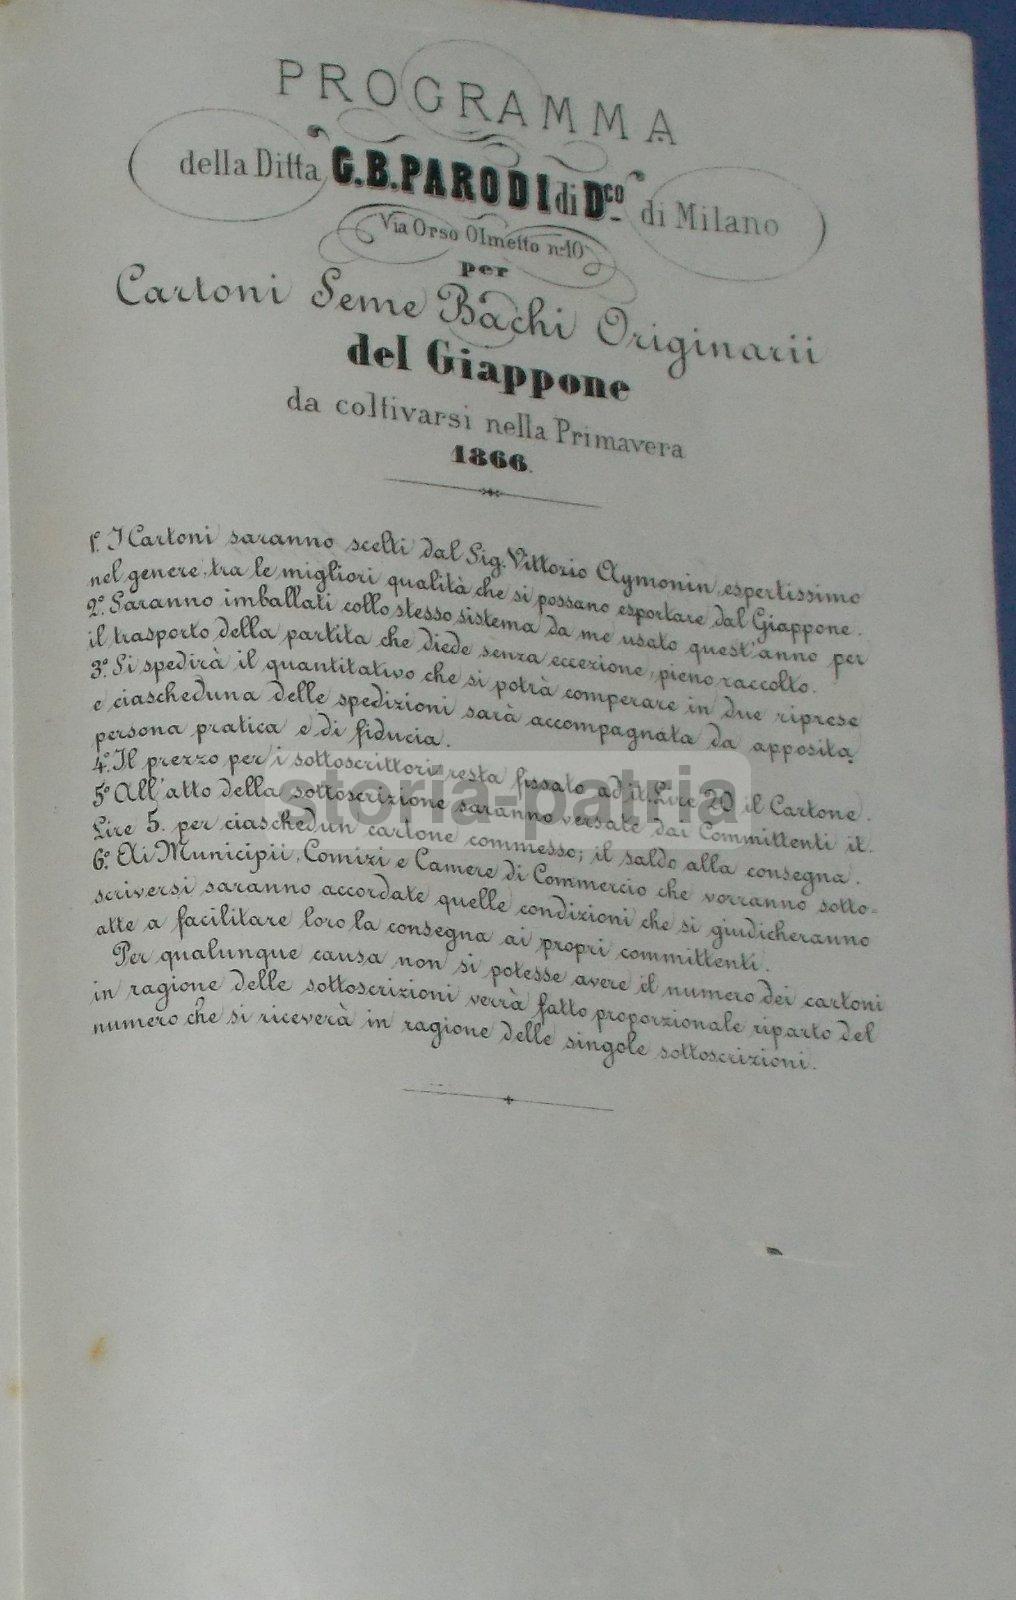 PROGRAMMA
della Ditta G.B. PARODI di D.co di Milano
Via Orso Olmetto n.10
per
Cartoni Seme Bachi Originarii
del Giappone
da coltivarsi nella Primavera
1866.
1.° I Cartoni saranno scelti dal Sig. Vittorio Aymonin, espertissimo
nel genere, tra le migliori qualità che si possano esportare dal Giappone.
2.° Saranno imballati collo stesso sistema da me usato quest'anno per
il trasporto della partita che diede senza eccezione, pieno raccolto.
3.° Si spedirà il quantitativo che si potrà comperare in due riprese
e ciascheduna delle spedizioni sarà accompagnata da apposita
persona pratica e di fiducia.
4.° Il prezzo per i sottoscrittori resta fissato ad it. Lire 20 il Cartone.
5.° All'atto della sottoscrizione saranno versate dai Committenti it.
Lire 5. per ciaschedun cartone commesso; il saldo alla consegna.
6.° Ai Municipii, Comizi e Camere di Commercio che vorranno sotto=
scriversi saranno accordate quelle condizioni che si giudicheranno
atte a facilitare loro la consegna ai propri committenti.
Per qualunque causa non si potesse avere il numero dei cartoni
in ragione delle sottoscrizioni verrà fatto proporzionale riparto del
numero che si riceverà in ragione delle singole sottoscrizioni.
storia-patria